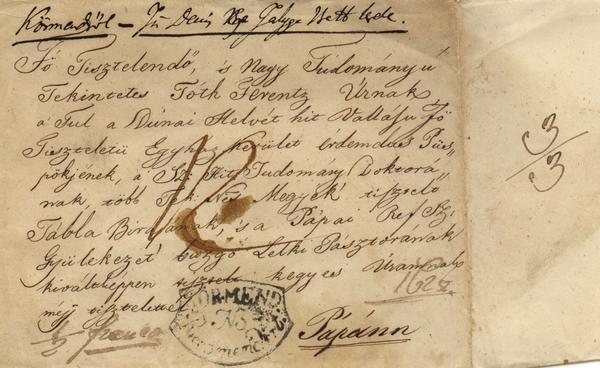 Körmendről –
Fő Tisztelendő, is Nagy Tudományú
Tekintetes Tóth Ferentz Úrnak
a Túl a Dúnai Helvét hit Vallásu Fő
Tiszteletü Egyház kerület érdemdús Püs=
pökjének, a Sz: Hit Tudomány Doktorá=
nak, több Tek. Nés Megyék tisztelt
Tábla Birájának, is a Pápai Ref. Sz.
Gyülekezet buzgó Lelki Pásztorának
kiváltképpen tisztelt kegyes Uramnak
méj tisztelettel
Pápánn
franco
KÖRMEND
3/3
12